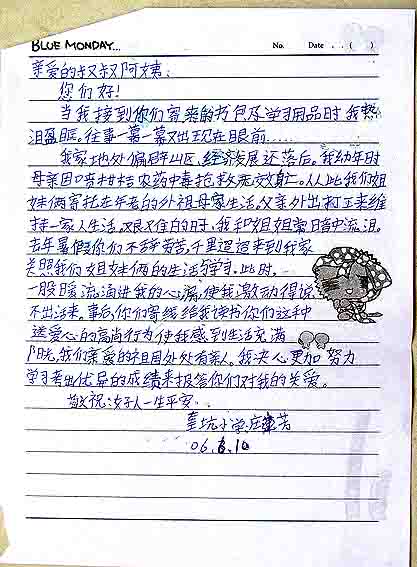 BLUE MONDAY...
No. Date . . ( )
亲爱的叔叔阿姨:
您们好!
当我接到你们寄来的书包及学习用品时我热
泪盈眶。往事一幕一幕又出现在眼前……
我家地处偏僻山区,经济发展还落后。我幼年时
母亲因喷柑桔农药中毒抢救无效身亡。从此我们姐
妹俩寄托在年老的外祖母家生活,父亲外出打工来维
持一家人生活。艰艰难的时,我和姐姐常暗中流泪。
去年暑假你们不辞劳苦,千里迢迢来到我家
关照我们姐妹俩的生活与学习。此时,
一股暖流涌进我的心窝,使我激动得说
不出话来。事后你们寄钱给我读书你们这种
送爱心的高尚行为使我感到生活充满
阳光,我们亲爱的祖国外处有亲人。我决心更加努力
学习考出优异的成绩来报答你们对我的关爱。
敬祝:好人一生平安..
坑小学:庄 芳
06.6.10